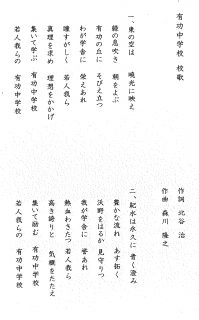 有功中学校 校歌
作詞 北谷 治
作曲 森川 隆之
一、東の空は 暁光に映え
緑の息吹き 朝をよぶ
有功の丘に そびえ立つ
わが学舎に 栄えあれ
瞳すがしく 若人我ら
真理を求め 理想をかかげ
集いて学ぶ 有功中学校
若人我らの 有功中学校
二、紀水は永久に 青く澄み
豊かな流れ あす拓く
沃野をはるか 見守りつ
我が学舎に 誉あれ
熱血わきたつ 若人我ら
高き誇りと 気概をたたえ
集いて励む 有功中学校
若人我らの 有功中学校